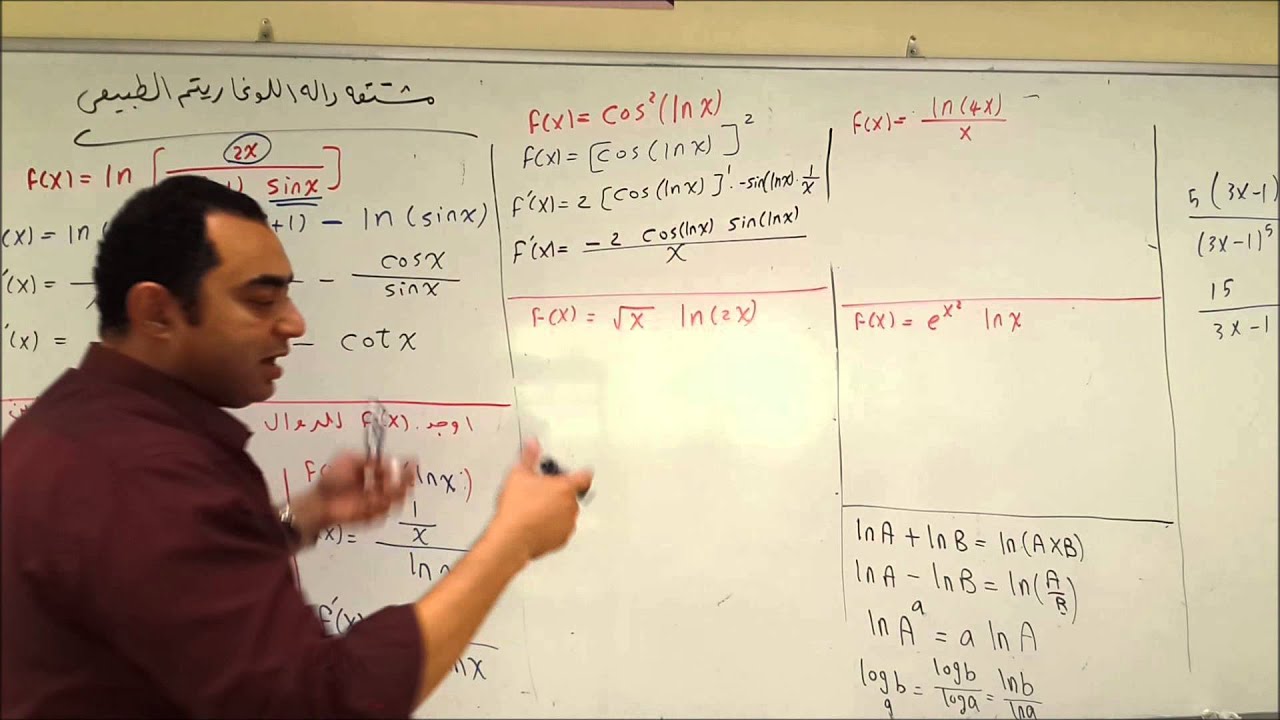 مشتقه داله اللوغاريتم الطبيعي
f(x) = ln [ 2x / 1) sinx ]
(x) = ln ( +1) - ln (sinx)
'(x) = - cosx / sinx
'(x) = - cotx
اوجد f'(x) للدوال
(lnx)
(x) = 1/x / ln
f'(x)
f(x) = cos²(lnx)
f(x) = [cos(lnx)]²
f'(x) = 2 [cos(lnx)]¹ · -sin(lnx) · 1/x
f'(x) = -2 cos(lnx) sin(lnx) / x
f(x) = √x ln(2x)
f(x) = ln(4x) / x
f(x) = e^x² lnx
lnA + lnB = ln(A×B)
lnA - lnB = ln(A/B)
lnA^a = a lnA
log_a b = logb / loga = lnb / lna
5 (3x-1) / (3x-1)^5
15 / 3x-1